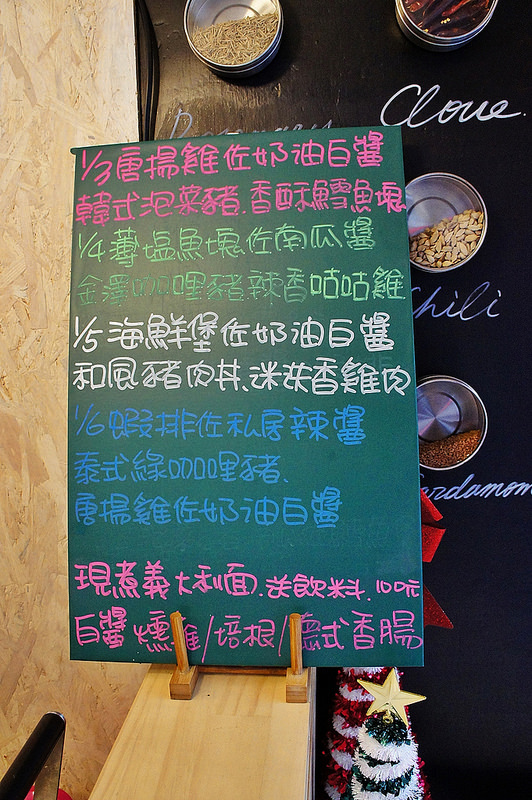 Clove.
Rosemary
1/3唐揚雞佐奶油白醬
韓式泡菜豬.香酥鱈魚塊
Chili
1/4薄塩魚塊佐南瓜醬
金澤咖哩豬.辣香咕咕雞
1/5海鮮堡佐奶油白醬
和風豬肉丼.迷迭香雞肉
1/6蝦排佐私房辣醬
泰式綠咖哩豬.
Cardamom
唐揚雞佐奶油白醬
現煮義大利面.送飲料.100元
白醬燻雞/培根/德式香腸